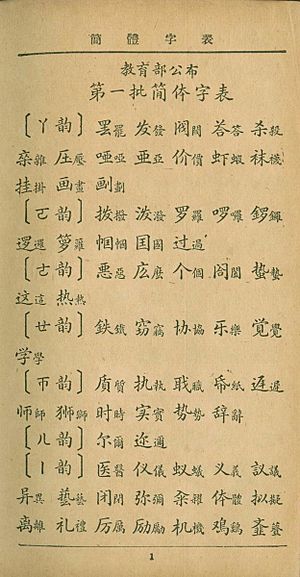 簡體字表
教育部公布
第一批简体字表
〔ㄚ韵〕 罢罷 发發 阀閥 荅答 杀殺
杂雜 压壓 哑啞 亚亞 价價 虾蝦 袜襪
挂掛 画畫 划劃
〔ㄛ韵〕 拨撥 泼潑 罗羅 啰囉 锣鑼
逻邏 箩籮 帼幗 国國 过過
〔ㄜ韵〕 恶惡 庅麽 个個 阁閣 蛰蟄
这這 热熱
〔ㄝ韵〕 鉄鐵 窃竊 协協 乐樂 觉覺
学學
〔ㄭ韵〕 质質 执執 职職 帋紙 迟遲
师師 狮獅 时時 实實 势勢 辞辭
〔ㄦ韵〕 尔爾 迩邇
〔ㄧ韵〕 医醫 仪儀 蚁蟻 义義 议議
异異 藝 闭閉 弥彌 籴糴 体體 拟擬
离離 礼禮 厉厲 励勵 机機 鸡鷄
1